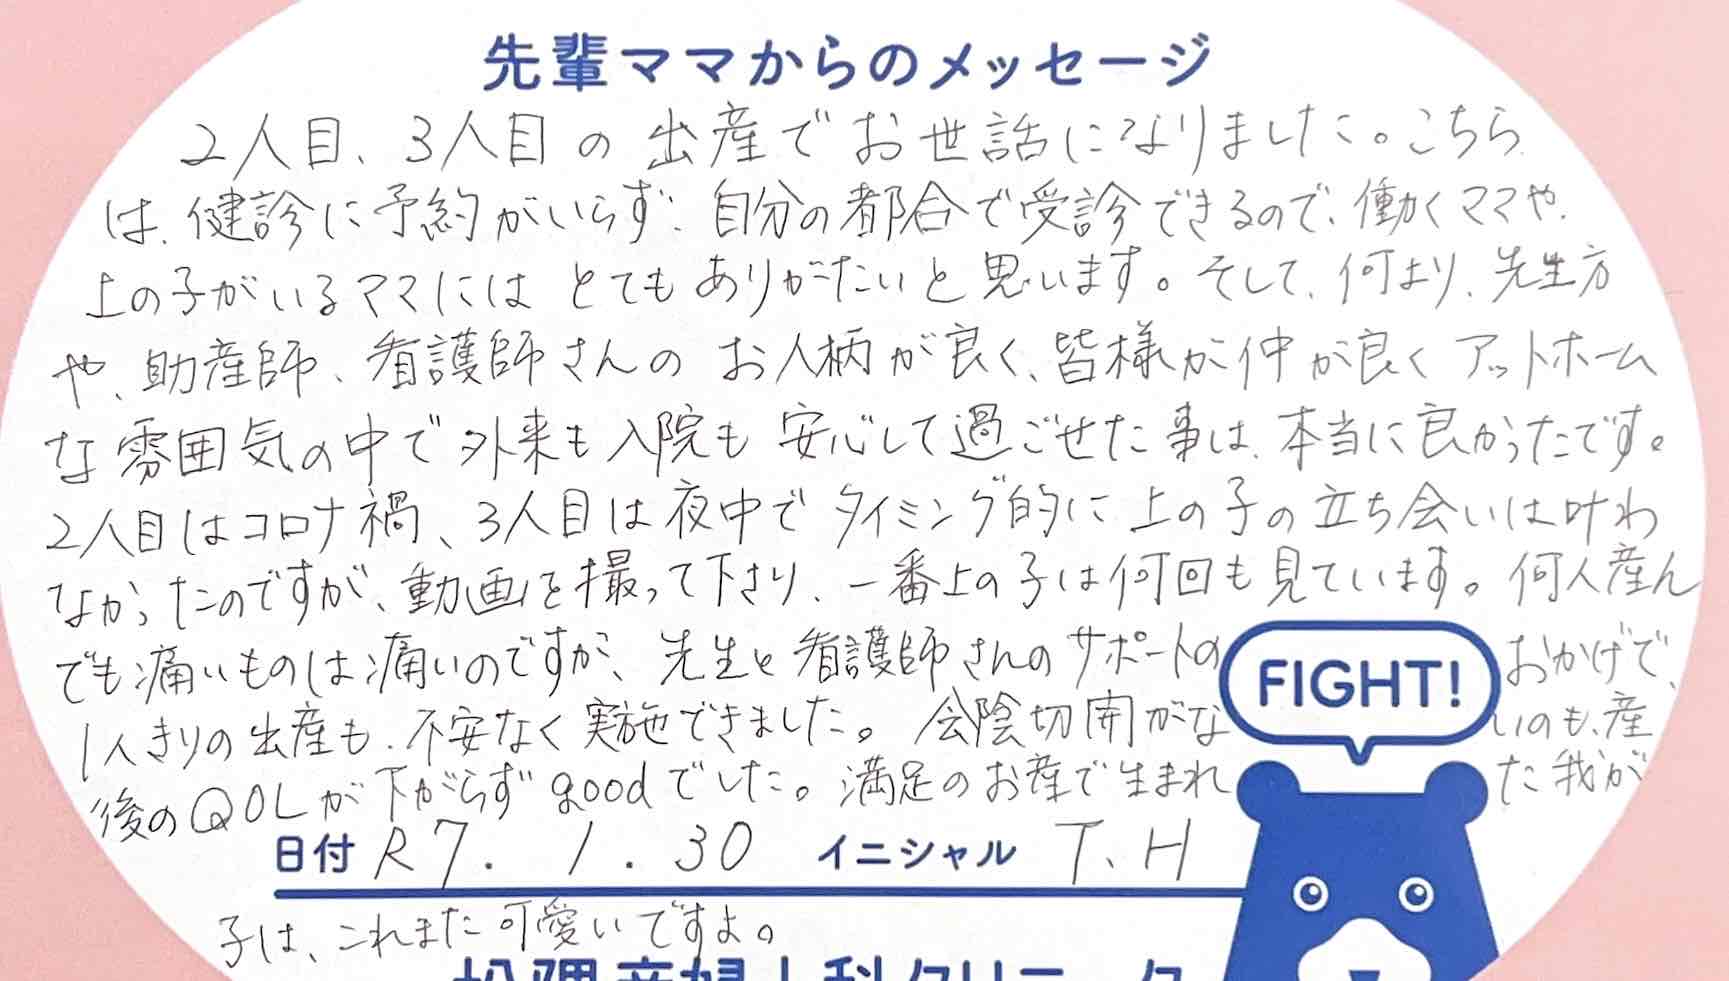 先輩ママからのメッセージ
2人目、3人目の出産でお世話になりました。こちら
は、健診に予約がいらず、自分の都合で受診できるので、働くママや、
上の子がいるママにはとてもありがたいと思います。そして、何より、先生方
や、助産師、看護師さんのお人柄が良く、皆様が仲が良くアットホーム
な雰囲気の中で外来も入院も安心して過ごせた事は、本当に良かったです。
2人目はコロナ禍、3人目は夜中でタイミング的に上の子の立ち会いは叶わ
なかったのですが、動画を撮って下さり、一番上の子は何回も見ています。何人産ん
でも痛いものは痛いのですが、先生と看護師さんのサポートのおかげで、
1人きりの出産も、不安なく実施できました。会陰切開がないのも、産
後のQOLが下がらずgoodでした。満足のお産で生まれた我が
FIGHT!
日付 R7.1.30 イニシャル T.H
子は、これまた可愛いですよ。
産婦人科クリニック